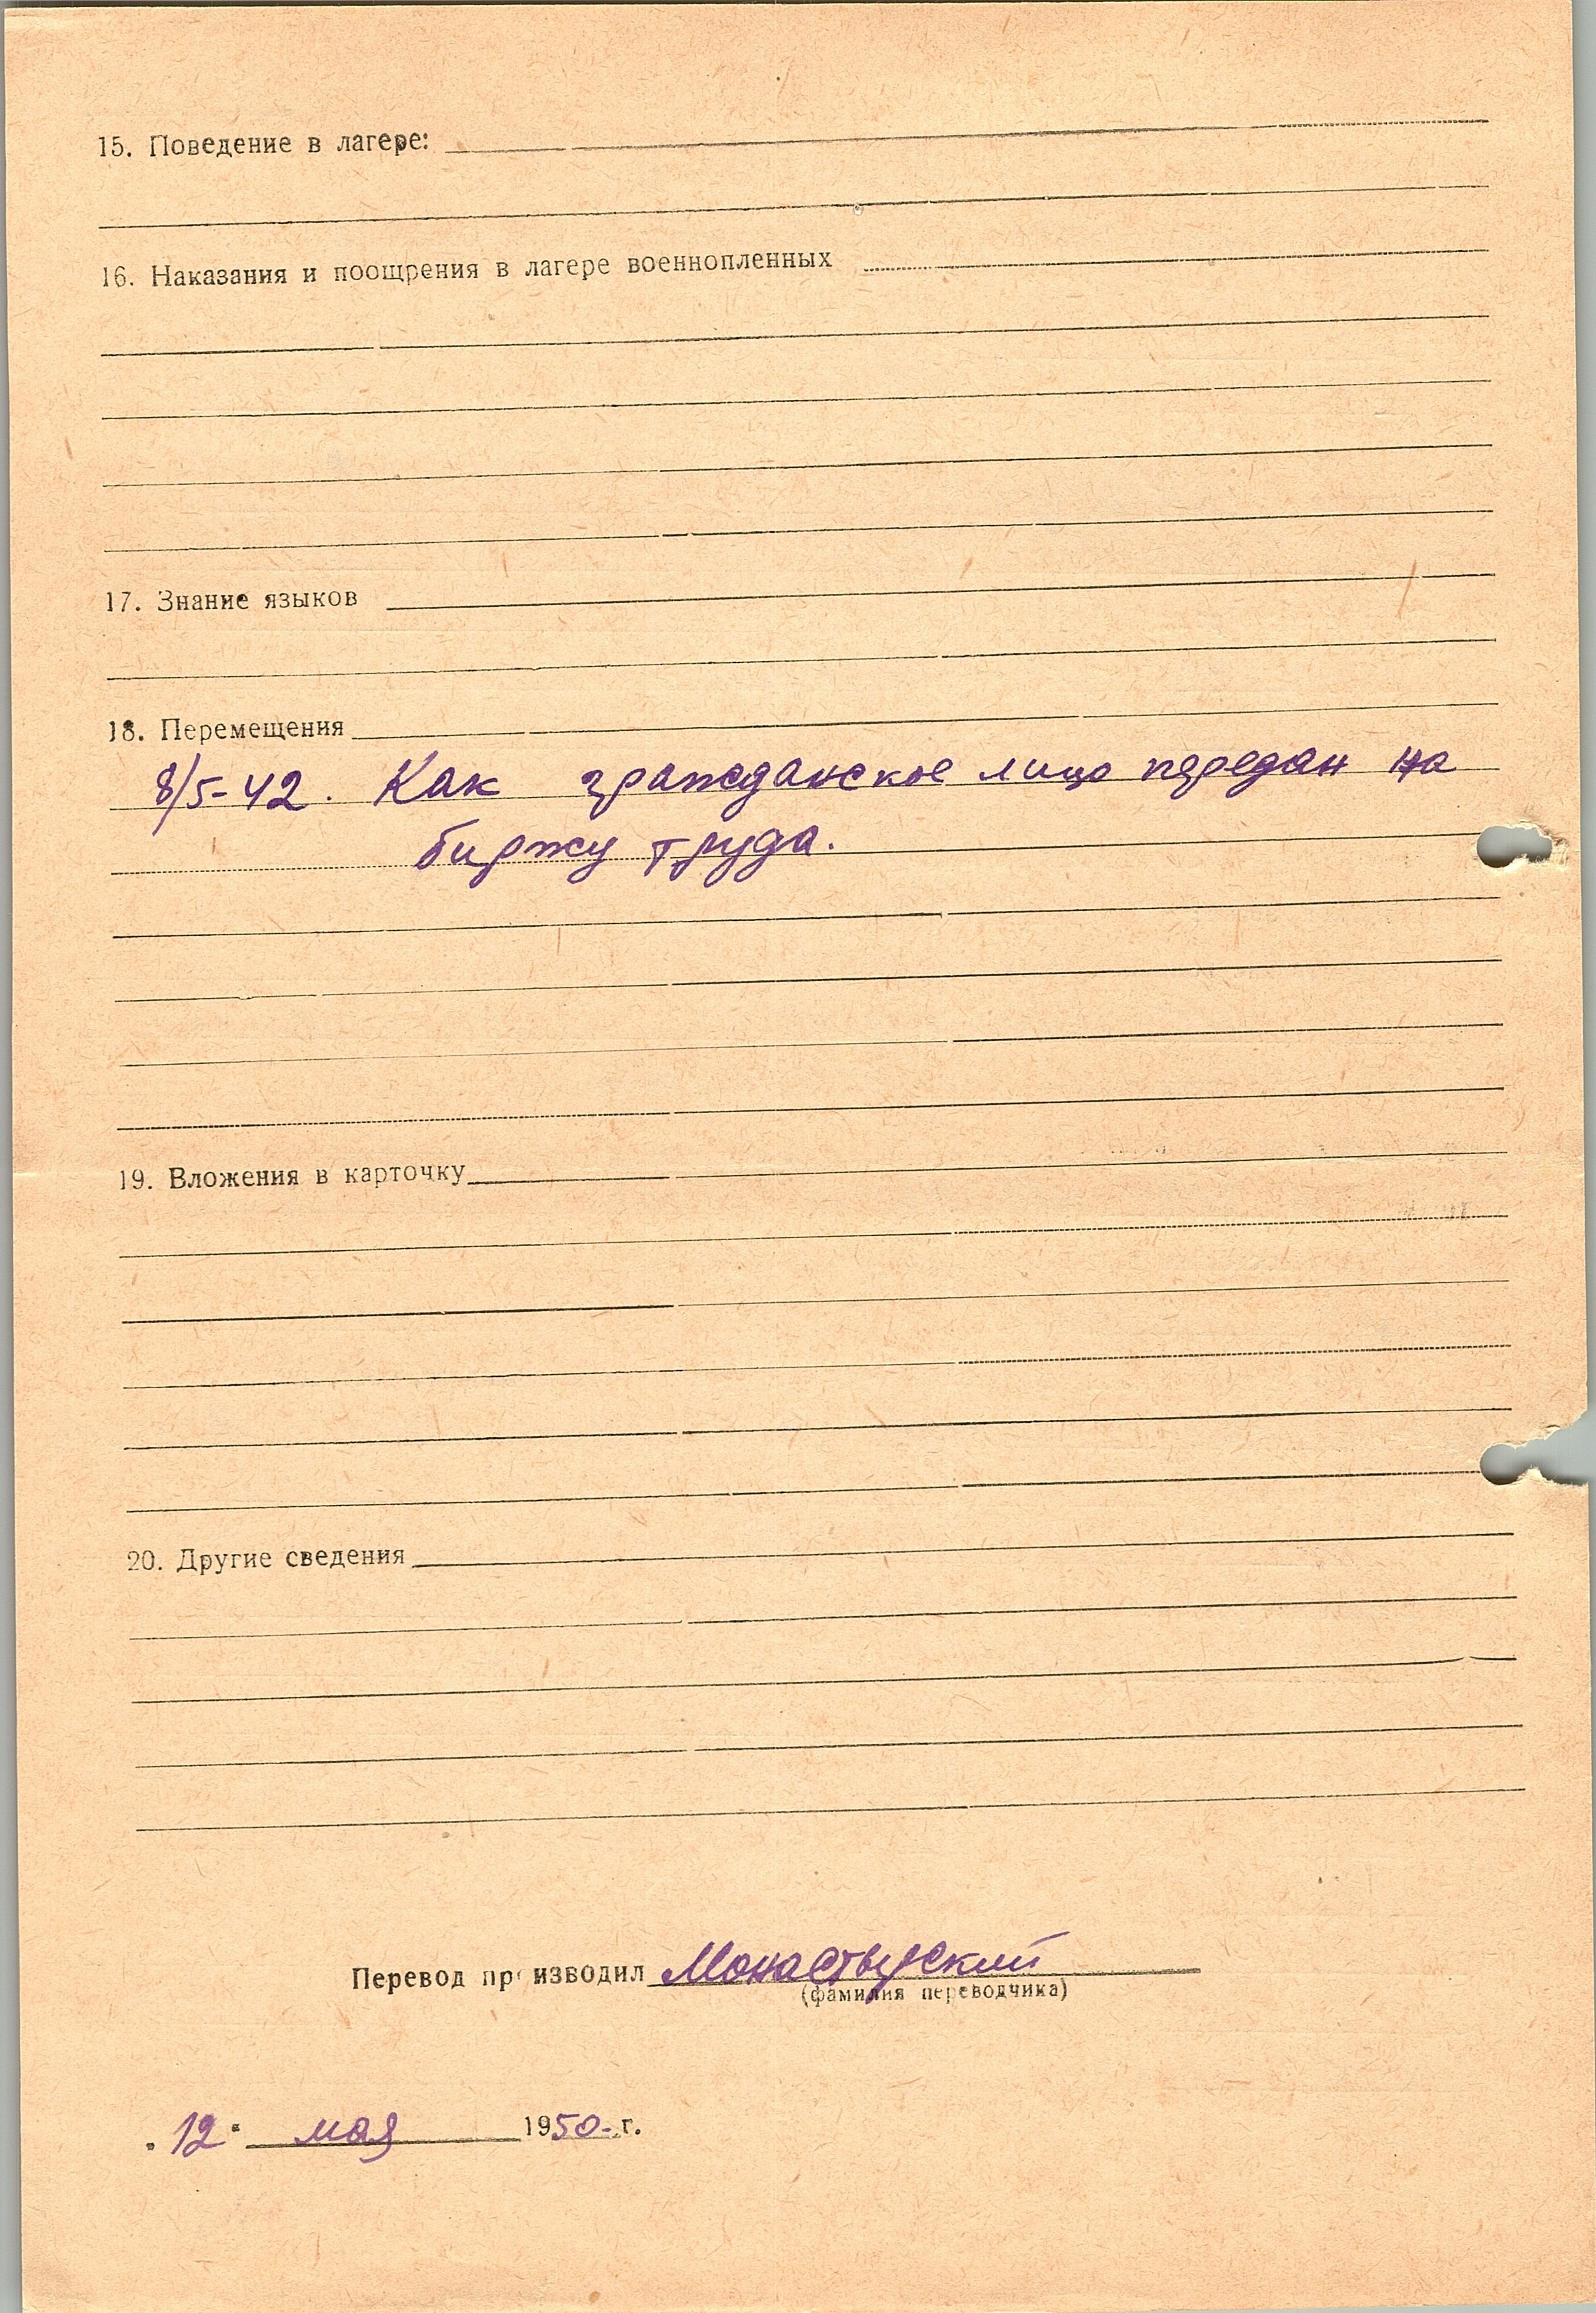 15. Поведение в лагере:
16. Наказания и поощрения в лагере военнопленных
17. Знание языков
18. Перемещения
8/5-42. Как гражданское лицо передан на
биржу труда.
19. Вложения в карточку
20. Другие сведения
Перевод производил Монастырский
(фамилия переводчика)
"12" мая 1950 г.